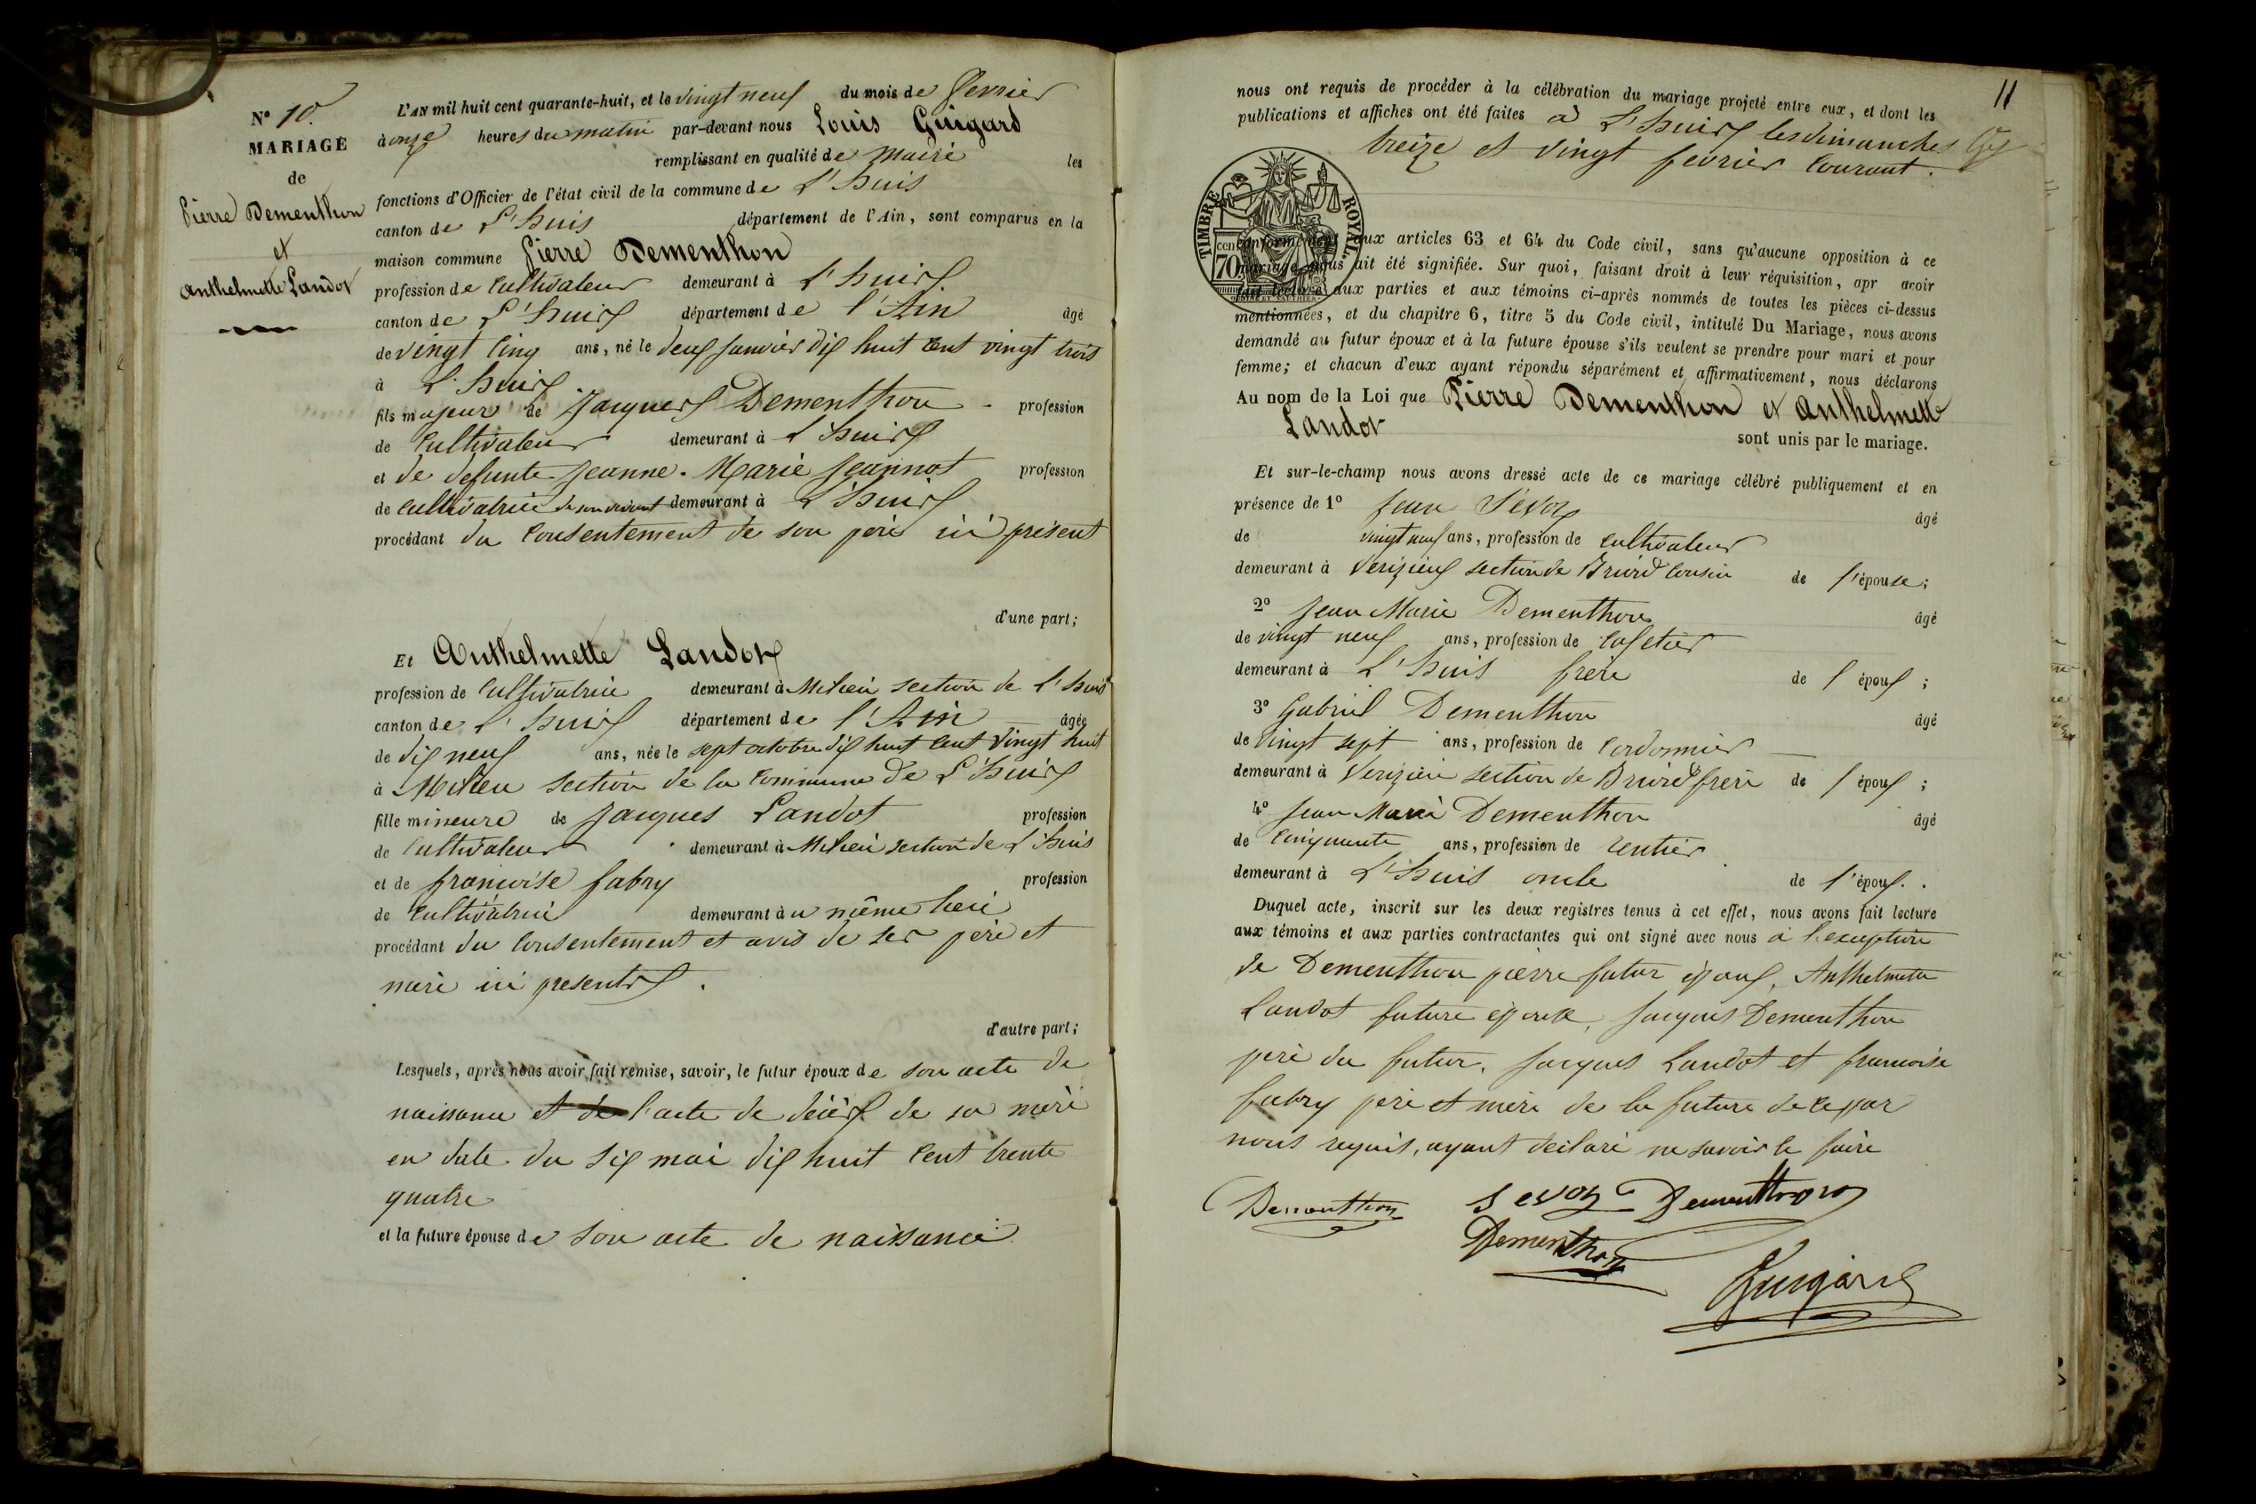 N° 10
MARIAGE
de
Pierre Dementhon
et
Anthelmette Landot
L'AN mil huit cent quarante-huit, et le vingt neuf du mois de fevrier
à onze heures du matin par-devant nous Louis Guigard
remplissant en qualité de maire les
fonctions d'Officier de l'état civil de la commune de L'huis
canton de L'huis département de l'Ain, sont comparus en la
maison commune Pierre Dementhon
profession de cultivateur demeurant à L'huis
canton de L'huis département de l'Ain âgé
de vingt cinq ans, né le deux janvier dix huit cent vingt trois
à L'huis
fils majeur de Jacques Dementhon profession
de cultivateur demeurant à L'huis
et de defunte Jeanne-Marie Jeannot profession
de cultivatrice de son vivant demeurant à L'huis
procédant du consentement de son pere ici présent
d'une part;
Et Anthelmette Landot
profession de cultivatrice demeurant à Milieu section de L'huis
canton de L'huis département de l'Ain âgée
de dix neuf ans, née le sept octobre dix huit cent vingt huit
à Milieu section de la commune de L'huis
fille mineure de Jacques Landot profession
de cultivateur demeurant à Milieu section de L'huis
et de francoise fabry profession
de cultivatrice demeurant au même lieu
procédant du consentement et avis de ses pere et
mère ici presents.
d'autre part;
Lesquels, après nous avoir fait remise, savoir, le futur époux de son acte de
naissance et de l'acte de décès de sa mère
en date du six mai dix huit cent trente
quatre
et la future épouse de son acte de naissance
11
nous ont requis de procéder à la célébration du mariage projeté entre eux, et dont les
publications et affiches ont été faites à L'huis les dimanches
treize et vingt fevrier courant.
TIMBRE ROYAL
70
conformément aux articles 63 et 64 du Code civil, sans qu'aucune opposition à ce
mariage nous ait été signifiée. Sur quoi, faisant droit à leur réquisition, apr avoir
fait lecture aux parties et aux témoins ci-après nommés de toutes les pièces ci-dessus
mentionnées, et du chapitre 6, titre 5 du Code civil, intitulé Du Mariage, nous avons
demandé au futur époux et à la future épouse s'ils veulent se prendre pour mari et pour
femme; et chacun d'eux ayant répondu séparément et affirmativement, nous déclarons
Au nom de la Loi que Pierre Dementhon et Anthelmette
Landot
sont unis par le mariage.
Et sur-le-champ nous avons dressé acte de ce mariage célébré publiquement et en
présence de 1° Jean Sevoz âgé
de vingt neuf ans, profession de cultivateur
demeurant à Verizieu section de Briord cousin de l'épouse;
2° Jean Marie Dementhon âgé
de vingt neuf ans, profession de cafetier
demeurant à L'huis frere de l'époux;
3° Gabriel Dementhon âgé
de vingt sept ans, profession de cordonnier
demeurant à Verizieu section de Briord frere de l'époux;
4° Jean Marie Dementhon âgé
de cinquante ans, profession de rentier
demeurant à L'huis oncle de l'époux.
Duquel acte, inscrit sur les deux registres tenus à cet effet, nous avons fait lecture
aux témoins et aux parties contractantes qui ont signé avec nous à l'exception
de Dementhon pierre futur époux, Anthelmette
Landot future epouse, Jacques Dementhon
pere du futur, Jacques Landot et francoise
fabry pere et mère de la future de ce par
nous requis, ayant déclaré ne savoir le faire
Dementhon Sevoz Dementhon
Dementhon
Guigard